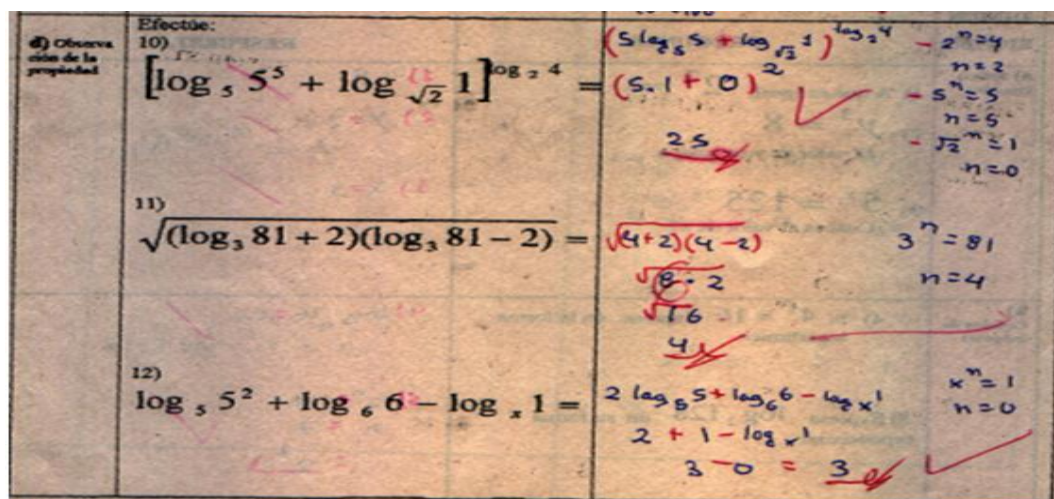 Efectúe:
d) Observa
ción de la
propiedad
10)
[log ₅ 5⁵ + log _√2 1]^log ₂ 4 =
(5 log₅ 5 + log_√2 1)^log₂ 4
(5.1 + 0)²
25
- 2ⁿ=4
n=2
- 5ⁿ=5
n=5
- √2ⁿ=1
n=0
11)
√(log₃ 81 + 2)(log₃ 81 − 2) =
√(4+2)(4-2)
√8-2
√16
4
3ⁿ=81
n=4
12)
log ₅ 5² + log ₆ 6 − log ₓ 1 =
2 log₅5 + log₆6 - logx1
2 + 1 - logx1
3 - 0 = 3
xⁿ=1
n=0